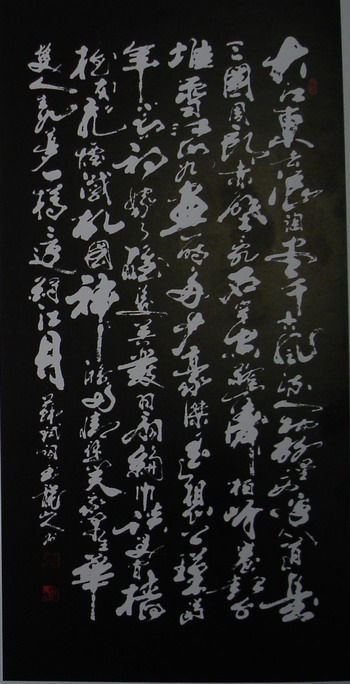 大江東去浪淘盡千古風流人物故壘西邊人道是
三國周郎赤壁亂石穿空驚濤拍岸卷起千
堆雪江山如畫一時多少豪傑遙想公瑾當
年小喬初嫁了雄姿英發羽扇綸巾談笑間檣
櫓灰飛煙滅故國神遊多情應笑我早生華
髮人如夢一樽還江月
蘇軾詞